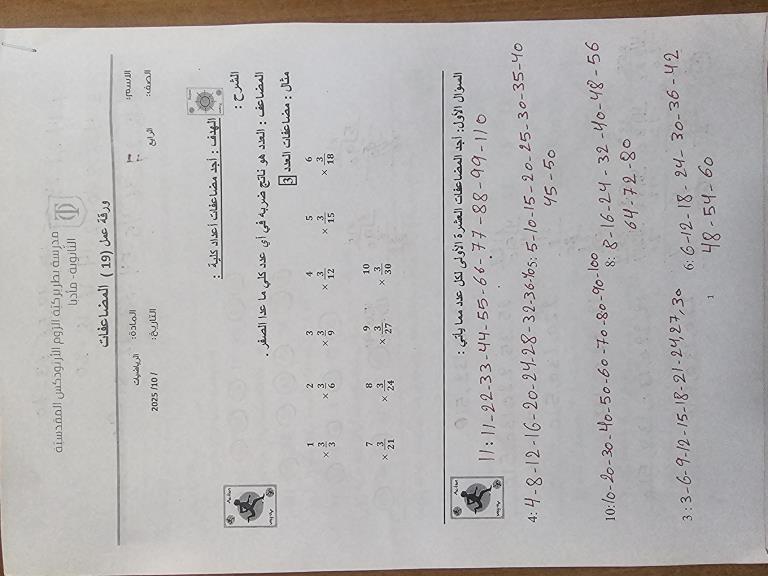 مدرسة بطريركية الروم الأرثوذكس المقدسية
الثانوية - مادبا
ورقة عمل ( 19 ) المضاعفات
الاسم:
المادة: الرياضيات
الصف: الرابع
التاريخ: / 10/ 2025
الهدف : أجد مضاعفات أعداد كلية :
الشرح :
المضاعف : العدد هو ناتج ضربه في أي عدد كلي ما عدا الصفر .
مثال : مضاعفات العدد 3
1 2 3 4 5 6
× 3 × 3 × 3 × 3 × 3 × 3
3 6 9 12 15 18
7 8 9 10
× 3 × 3 × 3 × 3
21 24 27 30
السؤال الأول: أجد المضاعفات العشرة الأولى لكل عدد مما يأتي :
11: 11-22-33-44-55-66-77-88-99-110
4: 4-8-12-16-20-24-28-32-36-40 5: 5-10-15-20-25-30-35-40
45-50
10: 10-20-30-40-50-60-70-80-90-100 8: 8-16-24-32-40-48-56
64-72-80
3: 3-6-9-12-15-18-21-24,27,30 6: 6-12-18-24-30-36-42
48-54-60
1